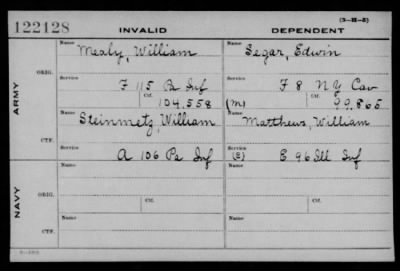 (3-H-5)
122128 INVALID DEPENDENT
Name Name
Mealy, William Segar, Edwin
ORIG. Service Service
F 115 Pa Inf F 8 N Y Cav
Ctf. Ctf.
104.558 (M) 99.865
ARMY
Name Name
Steinmetz, William Matthews, William
CTF. Service Service
A 106 Pa Inf (S) E 96 Ill Inf
Name Name
ORIG.
Ctf. Ctf.
NAVY
Name Name
CTF.